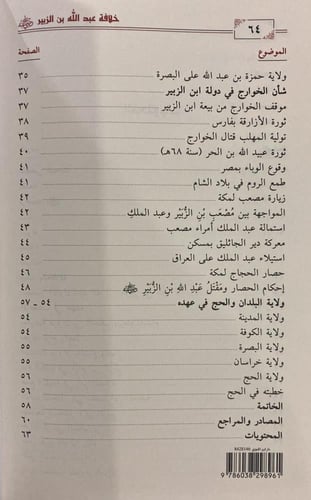 ٦٤
خلافة عبد الله بن الزبير
الموضوع الصفحة
ولاية حمزة بن عبد الله على البصرة ٣٥
شأن الخوارج في دولة ابن الزبير ٣٧
موقف الخوارج من بيعة ابن الزبير ٣٧
ثورة الأزارقة بفارس ٣٨
تولية المهلب قتال الخوارج ٣٩
ثورة عبيد الله بن الحر (سنة ٦٨هـ) ٤٠
وقوع الوباء بمصر ٤١
طمع الروم في بلاد الشام ٤١
زيارة مصعب لمكة ٤٢
المواجهة بين مُصْعَبِ بْنِ الزُّبَيْرِ وعبد الملك ٤٢
استمالة عبد الملك أمراء مصعب ٤٣
معركة دير الجاثليق بمسكن ٤٤
استيلاء عبد الملك على العراق ٤٥
حصار الحجاج لمكة ٤٦
إحكام الحصار ومَقْتَلُ عَبْدِ اللهِ بْنِ الزُّبَيْرِ ٤٨
ولاية البلدان والحج في عهده ٥٤ - ٥٧
ولاية المدينة ٥٤
ولاية الكوفة ٥٤
ولاية البصرة ٥٥
ولاية خراسان ٥٥
ولاية الحج ٥٦
خطبته في الحج ٥٦
الخاتمة ٥٨
المصادر والمراجع ٦٠
المحتويات ٦٣
9 786038 298961